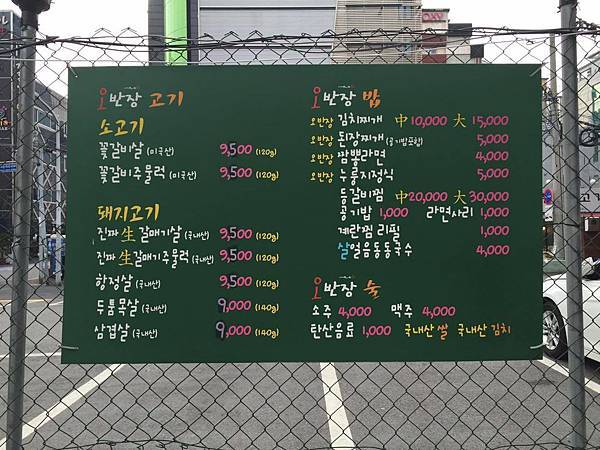 오반장 고기
소고기
꽃갈비살 (미국산) 9,500 (120g)
꽃갈비주물럭 (미국산) 9,500 (120g)
돼지고기
진짜 生 갈매기살 (국내산) 9,500 (120g)
진짜 生 갈매기주물럭 (국내산) 9,500 (120g)
항정살 (국내산) 9,500 (120g)
두툼목살 (국내산) 9,000 (140g)
삼겹살 (국내산) 9,000 (140g)
오반장 밥
오반장 김치찌개 中 10,000 大 15,000
오반장 된장찌개 (공기밥포함) 5,000
오반장 짬뽕라면 4,000
오반장 누룽지정식 5,000
등갈비찜 中 20,000 大 30,000
공기밥 1,000 라면사리 1,000
계란찜 리필 1,000
살얼음동동국수 4,000
오반장 술
소주 4,000 맥주 4,000
탄산음료 1,000 국내산 쌀 국내산 김치
OXY